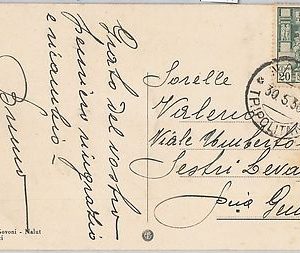 Grato del vostro
pensiero ringrazio
e ricambio -
Bruno
Sorelle
Valen
Viale Umberto
Sestri Leva
(via Gen
20
30.5.3
TRIPOLIT
Govoni - Nalut